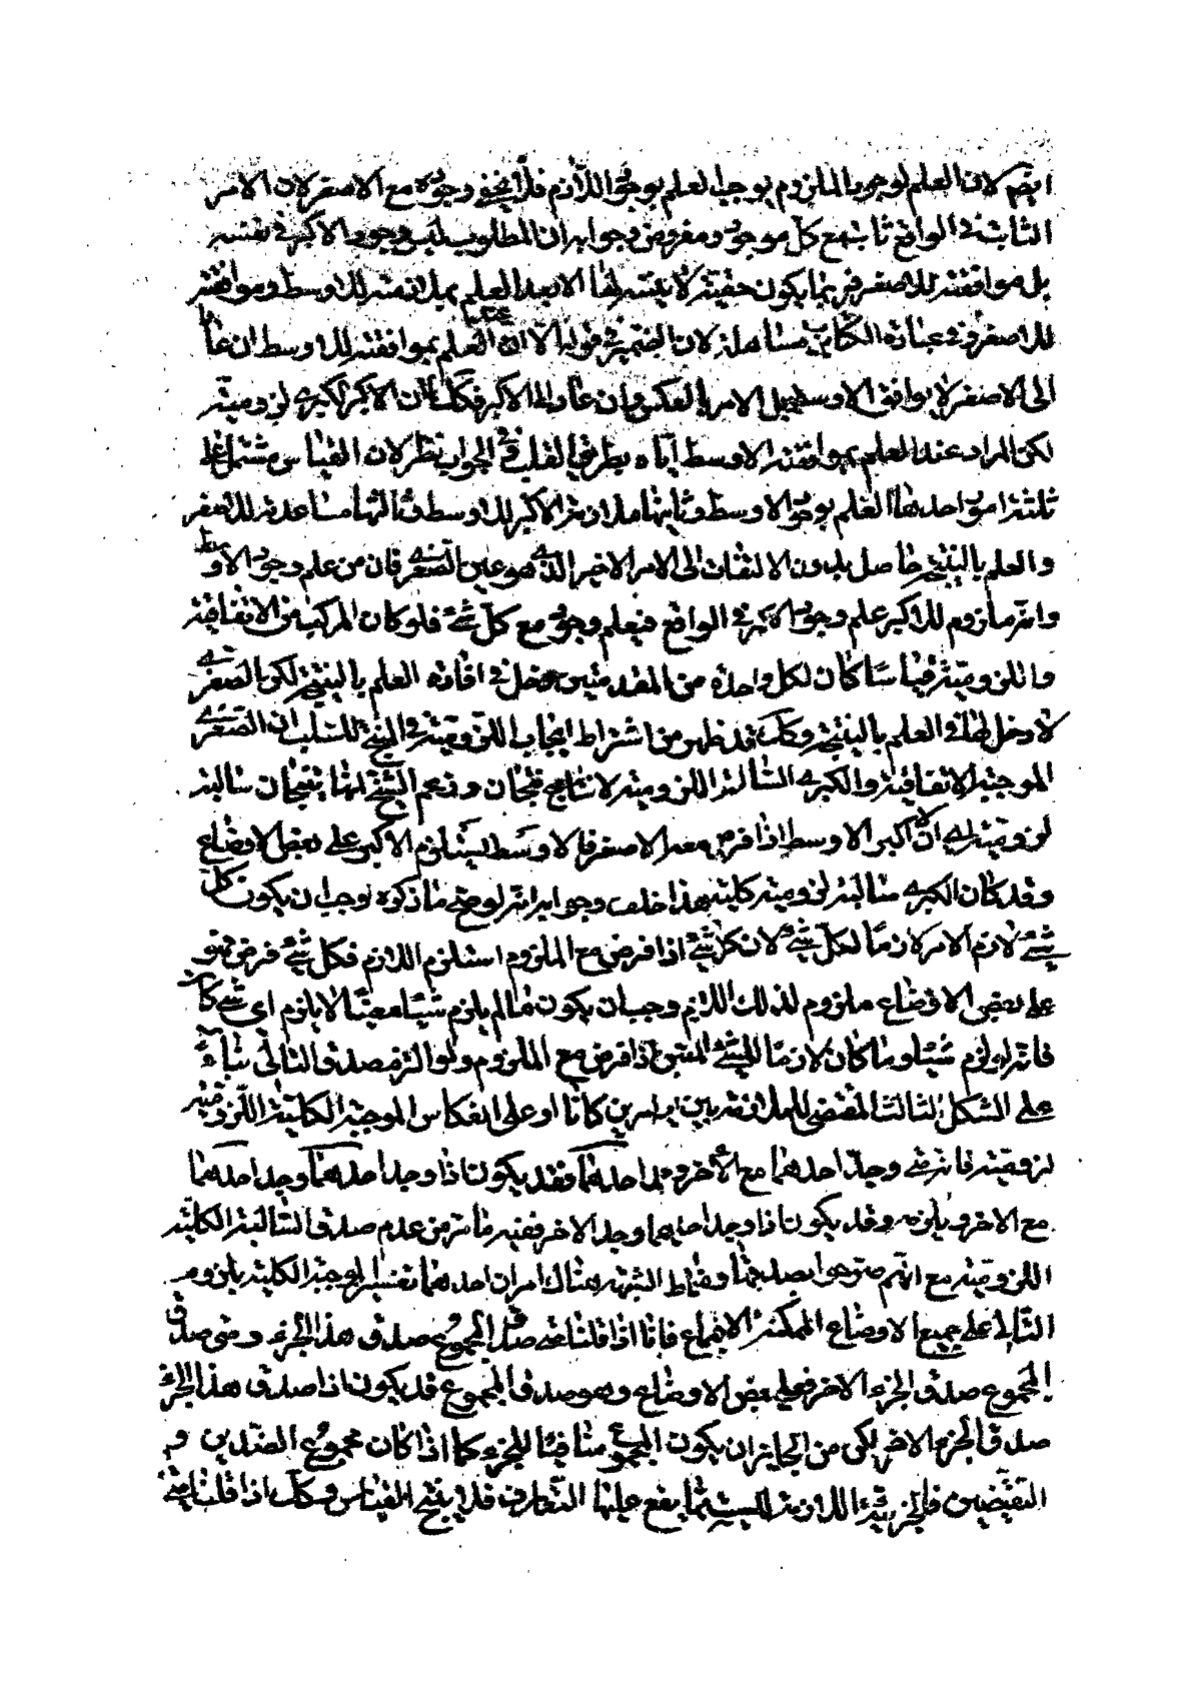 ايضا لان العلم لوجود الملزوم يوجب العلم بوجود اللازم فلا يخفى وجوده مع الاصغر لان الامر
الثابت فى الواقع ثابت مع كل موجود ومفروض وجوابه ان المطلوب ليس وجود الاكبر فى نفسه
بل موافقته للاصغر فربما يكون حفيته لا يتنبه لها الا بعد العلم بملازمته للاوسط وموافقته
للاصغر وفى عبارة الكتاب مساهلة لان الضمير فى قوله الا ان العلم بموافقته للاوسط ان عاد
الى الاصغر لا يوافق الاوسط بل الامر بالعكس وان عاد الى الاكبر فكك لان الاكبر لكبرى لزومية
لكن المراد عند العلم بموافقته الاوسط اياه بطريق القلب وفى الجواب نظر لان القياس مشتمل على
ثلثة امور احدها العلم بوجود الاوسط وثانيها ملازمة الاكبر للاوسط وثالثها مساعدته للاصغر
والعلم بالنتيجة حاصل بدون الالتفات الى الامر الاخير الذى هو عين الصغرى فان من علم وجود الاوسط
وانه ملزوم للاكبر علم وجود الاكبر فى الواقع فيعلم وجوده مع كل شئ فلو كان المركب من الاتفاقية
واللزومية قياسا كان لكل واحدة من المقدمتين دخل فى افادة العلم بالنتيجة لكن الصغرى
لا دخل لها فى العلم بالنتيجة وكك قد ظهر من اشتراط ايجاب اللزومية فى المنتج للسلب ان الصغرى
الموجبة الاتفاقية والكبرى السالبة اللزومية لا تنتجان وزعم الشيخ انهما ينتجان سالبة
لزومية لان اكبر الاوسط اذا فرض معه الاصغر فالاوسط يستلزم الاكبر على بعض الاوضاع
وقد كان الكبرى سالبة لزومية كلية هذا خلف وجوابه انه لو صح ما ذكره لوجب ان يكون كل
شئ لازم الامر لازما لكل شئ لان كل شئ اذا فرض مع الملزوم استلزم اللازم فكل شئ فرض فهو
على بعض الاوضاع ملزوم لذلك اللازم وجب ان يكون ما لم يلزم شيئا معينا لا يلزم اى شئ كان
فانه لو لزم شيئا وما كان لازما للشئ المعين اذا فرض مع الملزوم ولو التزم صدق التالى بناء
على الشكل الثالث المقتضى للملازمة بين اى امرين كانا او على انعكاس الموجبة الكلية اللزومية
لزومية فانه متى وجد احدهما مع الاخر وجد احدهما فقد يكون اذا وجد احدهما وجد احدهما
مع الاخر ويلزمه وقد يكون اذا وجد احدهما وجد الاخر ففيه ما مر من عدم صدق السالبة الكلية
اللزومية مع انهم صرحوا بصدقها ومناط الشبهة هناك امران احدهما تفسير الموجبة الكلية بلزوم
التالى على جميع الاوضاع الممكنة الاجتماع فانا اذا قلنا متى صدق المجموع صدق هذا الجزء ومتى صدق
المجموع صدق الجزء الاخر فعلى بعض الاوضاع وهو صدق المجموع قد يكون اذا صدق هذا الجزء
صدق الجزء الاخر لكن من الجايز ان يكون المجموع منافيا للجزء كما اذا كان مجموع الضدين و
النقيضين فالجزئية اللازمة ليست مما يقع عليها التعارف فلا ينتج القياس وكك اذا قلنا متى